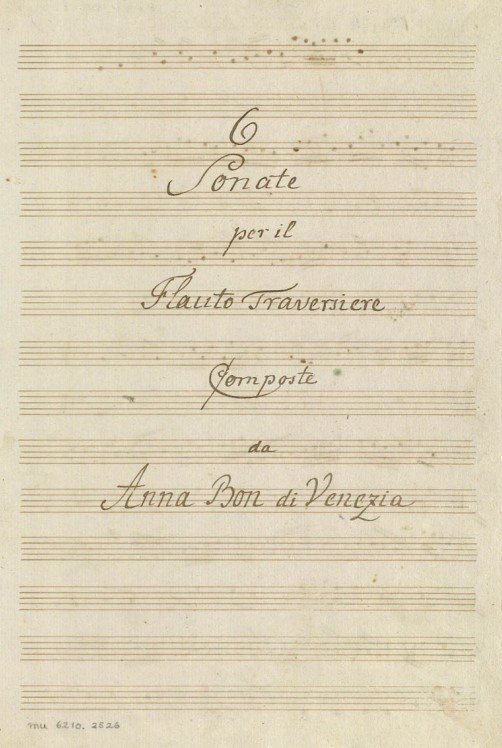 6
Sonate
per il
Flauto Traversiere
Composte
da
Anna Bon di Venezia
mu 6210.2526